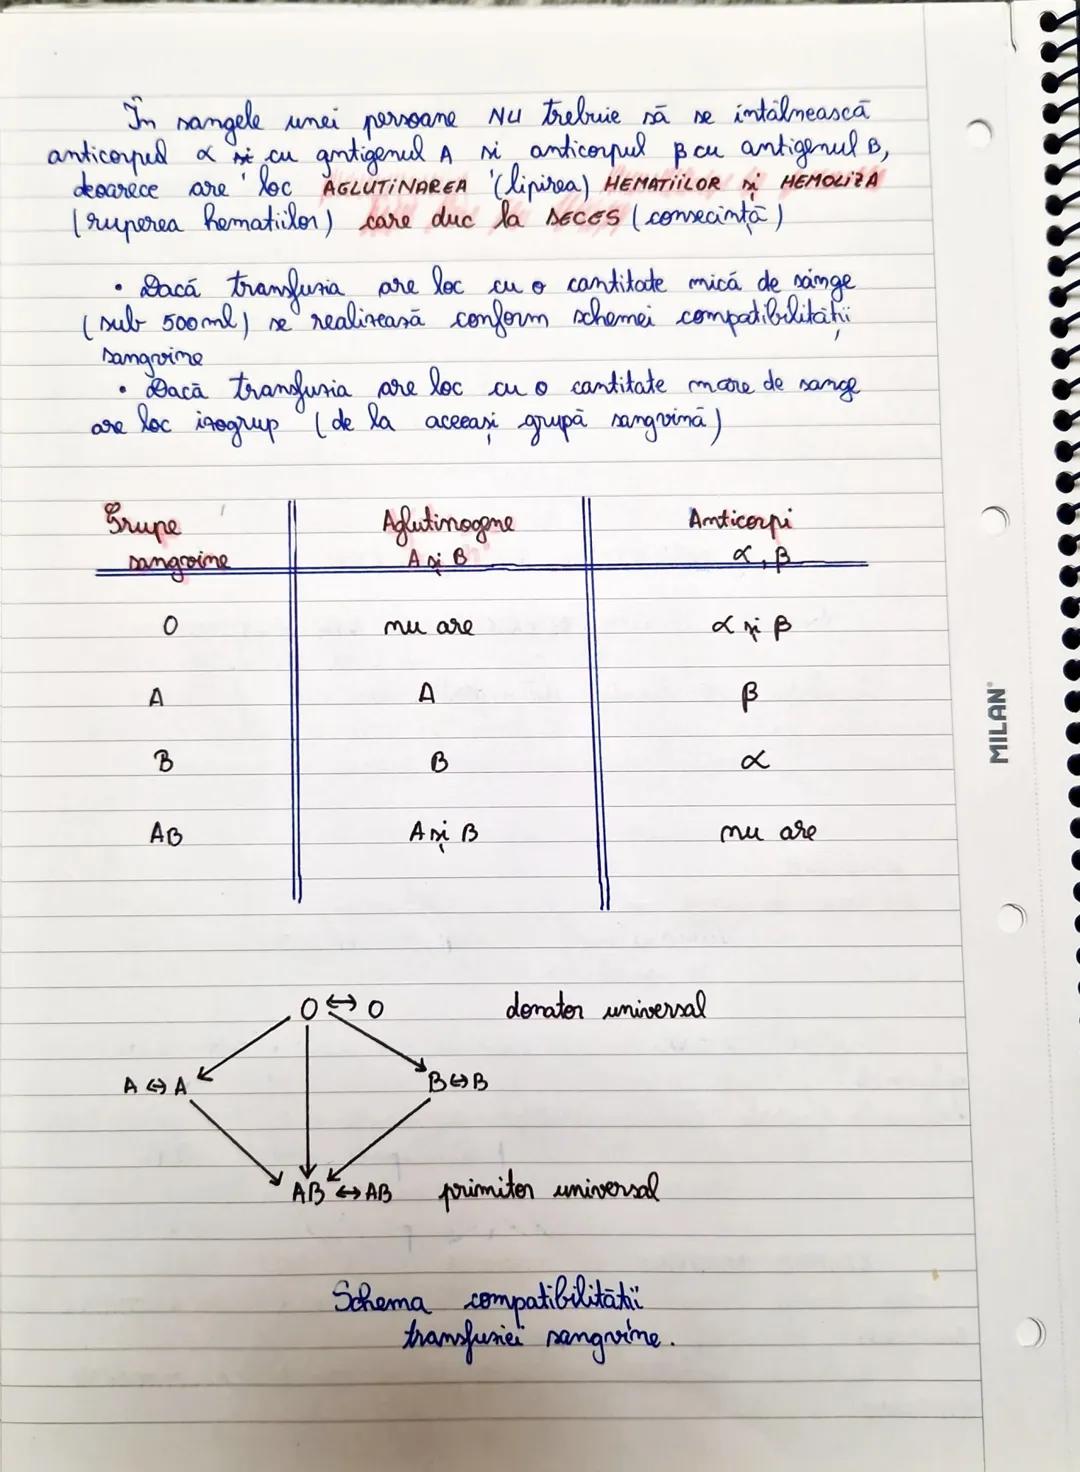 În sangele unei persoane NU trebuie să se intâlnească
anticorpul α și cu antigenul A si anticorpul β cu antigenul B,
deoarece are loc AGLUTINAREA (lipirea) HEMATIILOR și HEMOLIZA
(ruperea hematiilor) care duc la DECES (consecință)
• Dacă transfuzia are loc cu o cantitate mică de sânge
(sub 500ml) se realizează conform schemei compatibilitătii
sangvine
• Dacă transfuzia are loc cu o cantitate mare de sange
are loc izogrup (de la aceeași grupă sangvină)
Grupe sangvine Aglutinogene A și B Anticorpi α, β
O nu are α și β
A A β
B B α
AB A și B nu are
O ↔ O donator universal
A ↔ A B ↔ B
AB ↔ AB primitor universal
Schema compatibilității
transfuziei sangvine.
MILAN